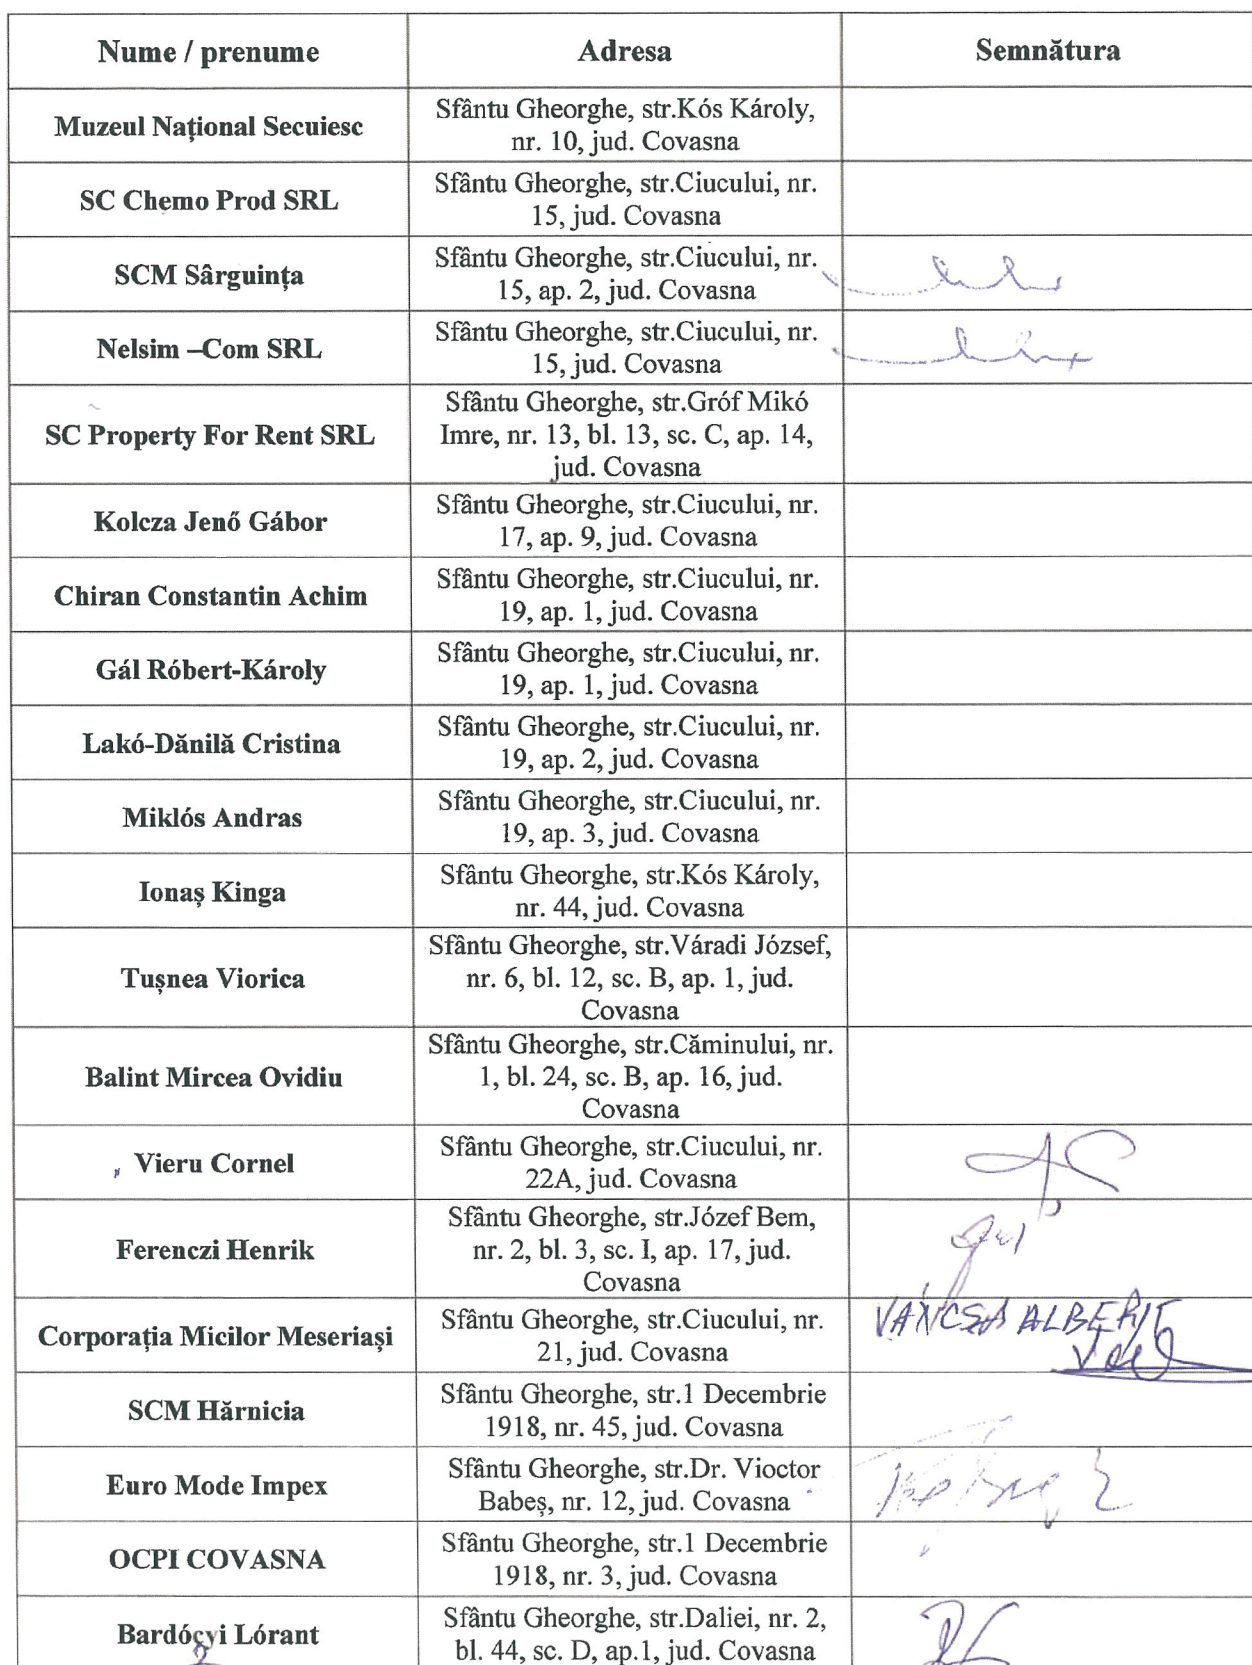 Nume / prenume Adresa Semnătura
Muzeul Național Secuiesc
Sfântu Gheorghe, str.Kós Károly,
nr. 10, jud. Covasna
SC Chemo Prod SRL
Sfântu Gheorghe, str.Ciucului, nr.
15, jud. Covasna
SCM Sârguința
Sfântu Gheorghe, str.Ciucului, nr.
15, ap. 2, jud. Covasna
Nelsim –Com SRL
Sfântu Gheorghe, str.Ciucului, nr.
15, jud. Covasna
SC Property For Rent SRL
Sfântu Gheorghe, str.Gróf Mikó
Imre, nr. 13, bl. 13, sc. C, ap. 14,
jud. Covasna
Kolcza Jenő Gábor
Sfântu Gheorghe, str.Ciucului, nr.
17, ap. 9, jud. Covasna
Chiran Constantin Achim
Sfântu Gheorghe, str.Ciucului, nr.
19, ap. 1, jud. Covasna
Gál Róbert-Károly
Sfântu Gheorghe, str.Ciucului, nr.
19, ap. 1, jud. Covasna
Lakó-Dănilă Cristina
Sfântu Gheorghe, str.Ciucului, nr.
19, ap. 2, jud. Covasna
Miklós Andras
Sfântu Gheorghe, str.Ciucului, nr.
19, ap. 3, jud. Covasna
Ionaș Kinga
Sfântu Gheorghe, str.Kós Károly,
nr. 44, jud. Covasna
Tușnea Viorica
Sfântu Gheorghe, str.Váradi József,
nr. 6, bl. 12, sc. B, ap. 1, jud.
Covasna
Balint Mircea Ovidiu
Sfântu Gheorghe, str.Căminului, nr.
1, bl. 24, sc. B, ap. 16, jud.
Covasna
Vieru Cornel
Sfântu Gheorghe, str.Ciucului, nr.
22A, jud. Covasna
Ferenczi Henrik
Sfântu Gheorghe, str.Józef Bem,
nr. 2, bl. 3, sc. I, ap. 17, jud.
Covasna
Corporația Micilor Meseriași
Sfântu Gheorghe, str.Ciucului, nr.
21, jud. Covasna
VANCSA ALBERT
SCM Hărnicia
Sfântu Gheorghe, str.1 Decembrie
1918, nr. 45, jud. Covasna
Euro Mode Impex
Sfântu Gheorghe, str.Dr. Vioctor
Babeș, nr. 12, jud. Covasna
OCPI COVASNA
Sfântu Gheorghe, str.1 Decembrie
1918, nr. 3, jud. Covasna
Bardócyi Lórant
Sfântu Gheorghe, str.Daliei, nr. 2,
bl. 44, sc. D, ap.1, jud. Covasna